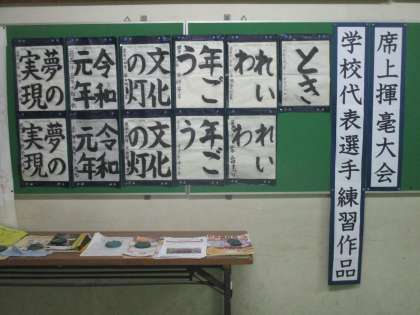 席上揮毫大会
学校代表選手練習作品
とき
れい
われ
年ご
う
文化
の灯
令和
元年
夢の
実現
れい
われ
年ご
う
文化
の灯
令和
元年
夢の
実現